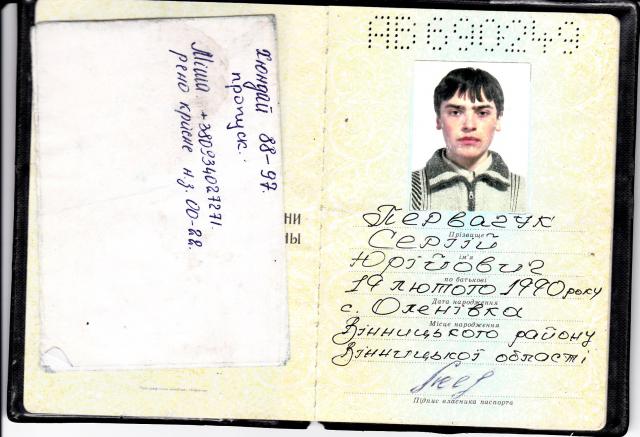 Хюндай 88-97.
пропуск:
Міша +380934027271
рено красне н.з. 00-22.
НИ
НЫ
АВ690249
Первачук
Прізвище
Сергій
ім'я
Юрійович
по батькові
19 лютого 1990 року
Дата народження
с. Оленівка
Місце народження
Вінницького району
Вінницької області
Підпис власника паспорта